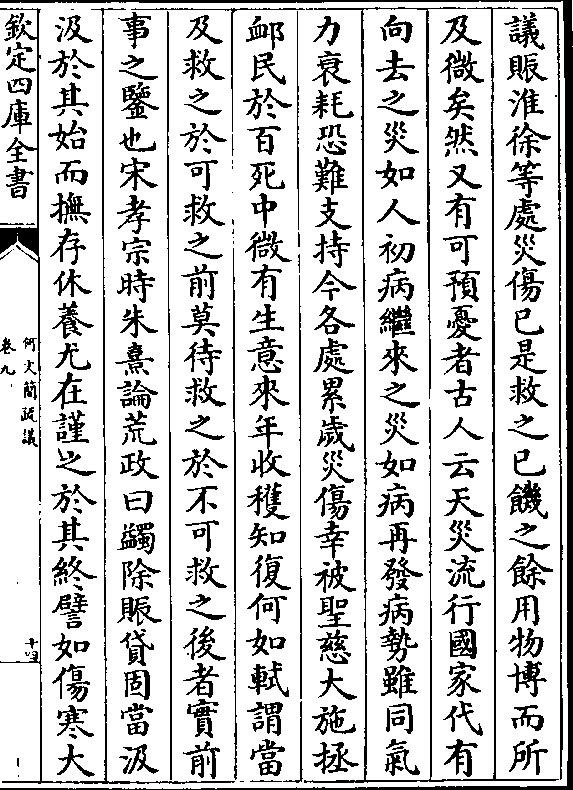 議賑淮徐等處災傷已是救之已饑之餘用物博而所
及微矣然又有可預憂者古人云天災流行國家代有
向去之災如人初病繼來之災如病再發病勢雖同氣
力衰耗恐難支持今各處累歲災傷幸被聖慈大施拯
䘏民於百死中微有生意來年收穫知復何如軾謂當
及救之於可救之前莫待救之於不可救之後者實前
事之鑒也宋孝宗時朱熹論荒政曰蠲除賑貸固當汲
汲於其始而撫存休養尤在謹之於其終譬如傷寒大
欽定四庫全書
何文簡疏議
卷九
十四